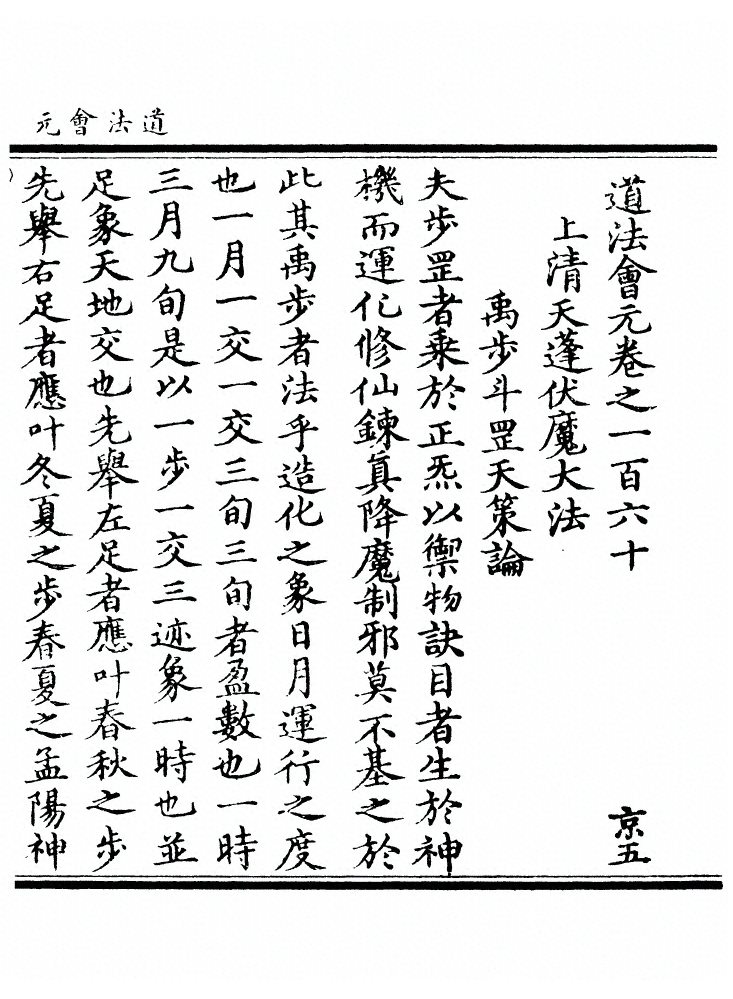 道法會元
道法會元卷之一百六十 京五
上清天蓬伏魔大法
禹步斗罡天策論
夫步罡者乘於正炁以禦物訣目者生於神
機而運化修仙鍊眞降魔制邪莫不基之於
此其禹步者法乎造化之象日月運行之度
也一月一交一交三旬三旬者盈數也一時
三月九旬是以一步一交三迹象一時也並
足象天地交也先舉左足者應叶春秋之步
先舉右足者應叶冬夏之步春夏之孟陽神